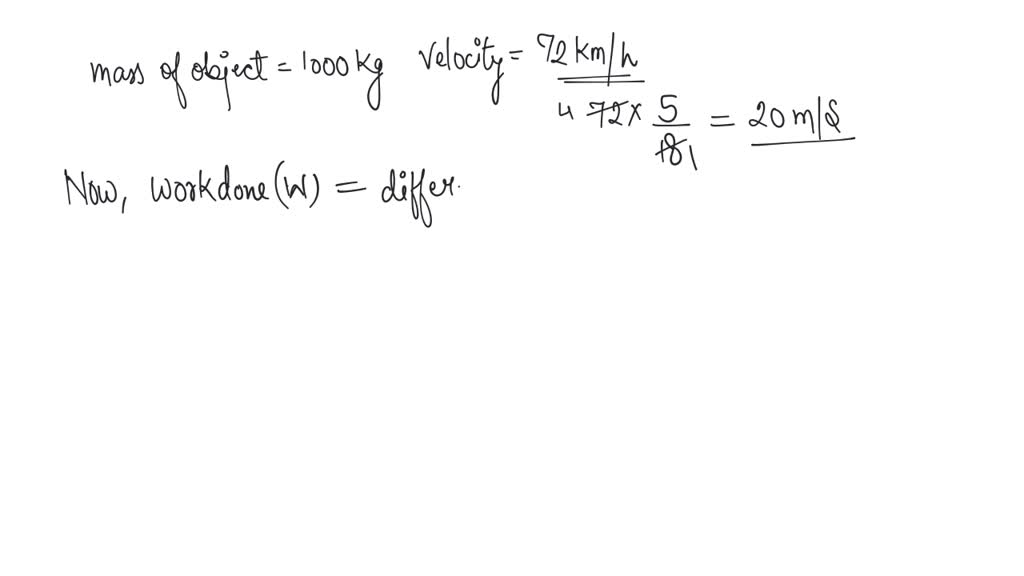 mass of object = 1000 kg velocity = 72 km/h
4 72 x 5/18 1 = 20 m/s
Now, workdone (W) = differ.